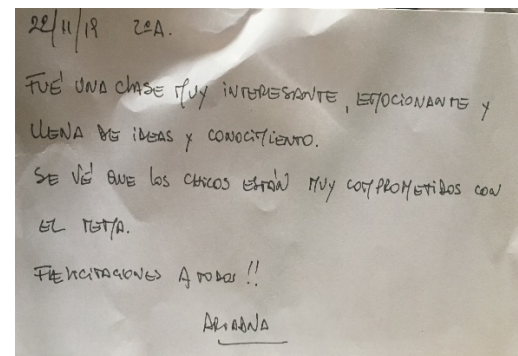 22/11/18 2ºA.
FUÉ UNA CLASE MUY INTERESANTE, EMOCIONANTE Y
LLENA DE IDEAS Y CONOCIMIENTO.
SE VÉ QUE LOS CHICOS ESTÁN MUY COMPROMETIDOS CON
EL TEMA.
FELICITACIONES A TODOS!!
ARIADNA